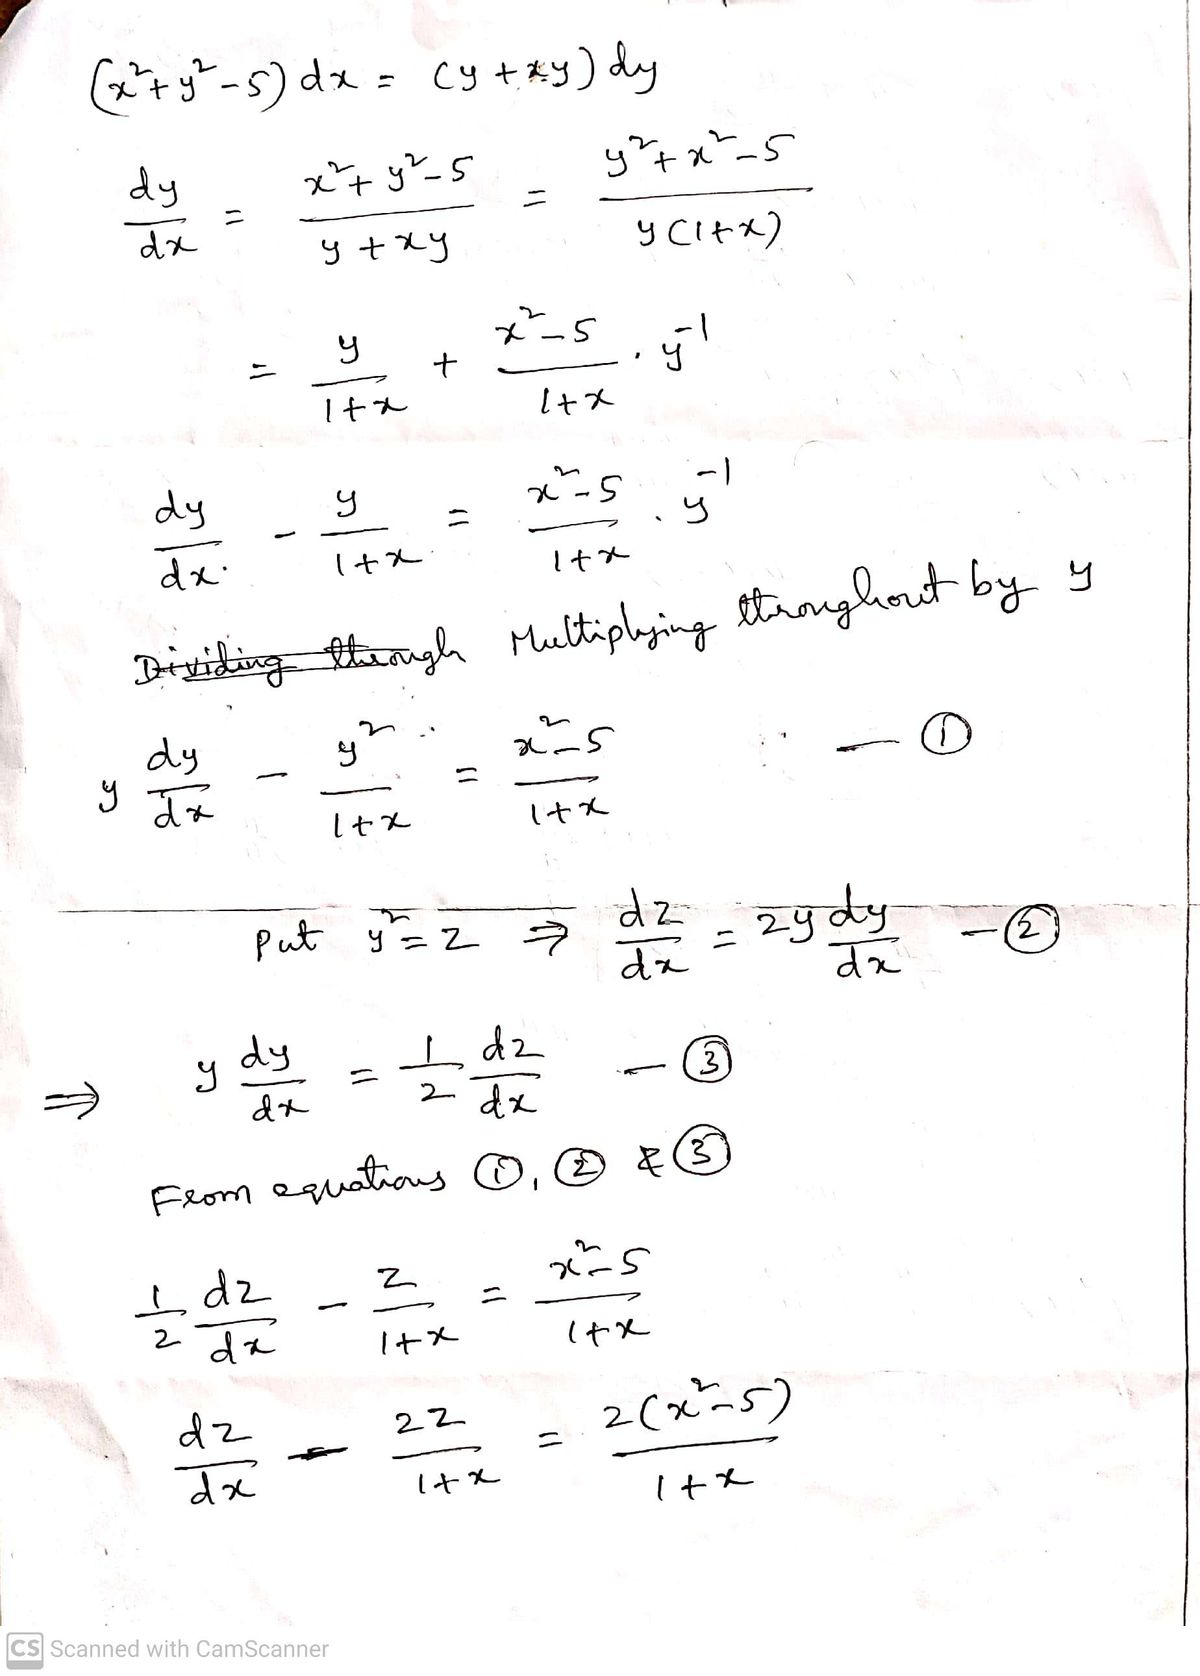 (x²+y²-5) dx = (y+xy) dy
dy/dx = (x²+y²-5)/(y+xy) = (y²+x²-5)/(y(1+x))
= y/(1+x) + (x²-5)/(1+x) · y⁻¹
dy/dx - y/(1+x) = (x²-5)/(1+x) · y⁻¹
Dividing through Multiplying throughout by y
y dy/dx - y²/(1+x) = (x²-5)/(1+x) — ①
Put y²=z ⇒ dz/dx = 2y dy/dx — ②
⇒ y dy/dx = 1/2 dz/dx — ③
From equations ①, ② & ③
1/2 dz/dx - z/(1+x) = (x²-5)/(1+x)
dz/dx - 2z/(1+x) = 2(x²-5)/(1+x)
CS Scanned with CamScanner